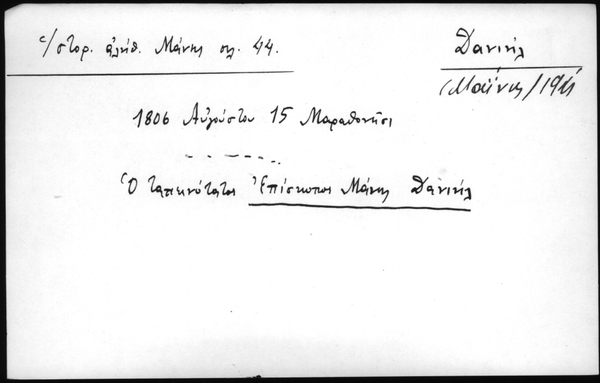 Ἱστορ. ἀλήθ. Μάνης σελ. 44.
Δανιήλ
(Μαΐνης/1911
1806 Αὐγούστου 15 Μαραθονῆσι
Ὁ ταπεινότατος Ἐπίσκοπος Μάνης Δανιήλ